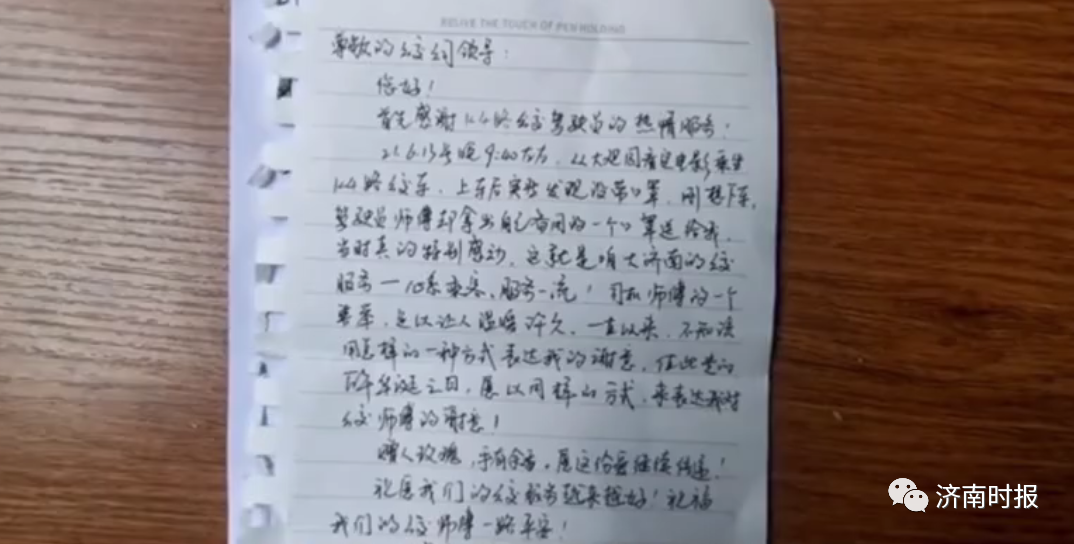 RELIVE THE TOUCH OF PEN HOLDING
尊敬的公交公司领导：
您好！
首先感谢K4路公交驾驶员的热情服务！
21.6.13号晚9:40左右，从大观园看完电影乘坐
K4路公交车，上车后突然发现没带口罩，刚想下车，
驾驶员师傅却拿出自己备用的一个口罩送给我，
当时真的特别感动，这就是咱大济南的公交
服务—心系乘客、服务一流！司机师傅的一个
善举，足以让人温暖许久，一直以来，不知该
用怎样的一种方式表达我的谢意，值此党的
百年华诞之日，愿以同样的方式，来表达我对
公交师傅的谢意！
赠人玫瑰，手有余香，愿这份爱继续传递！
祝愿我们的公交服务越来越好！祝福
我们的公交师傅一路平安！
济南时报